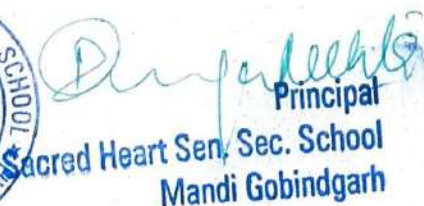 SCHOOL
Principal
Sacred Heart Sen. Sec. School
Mandi Gobindgarh